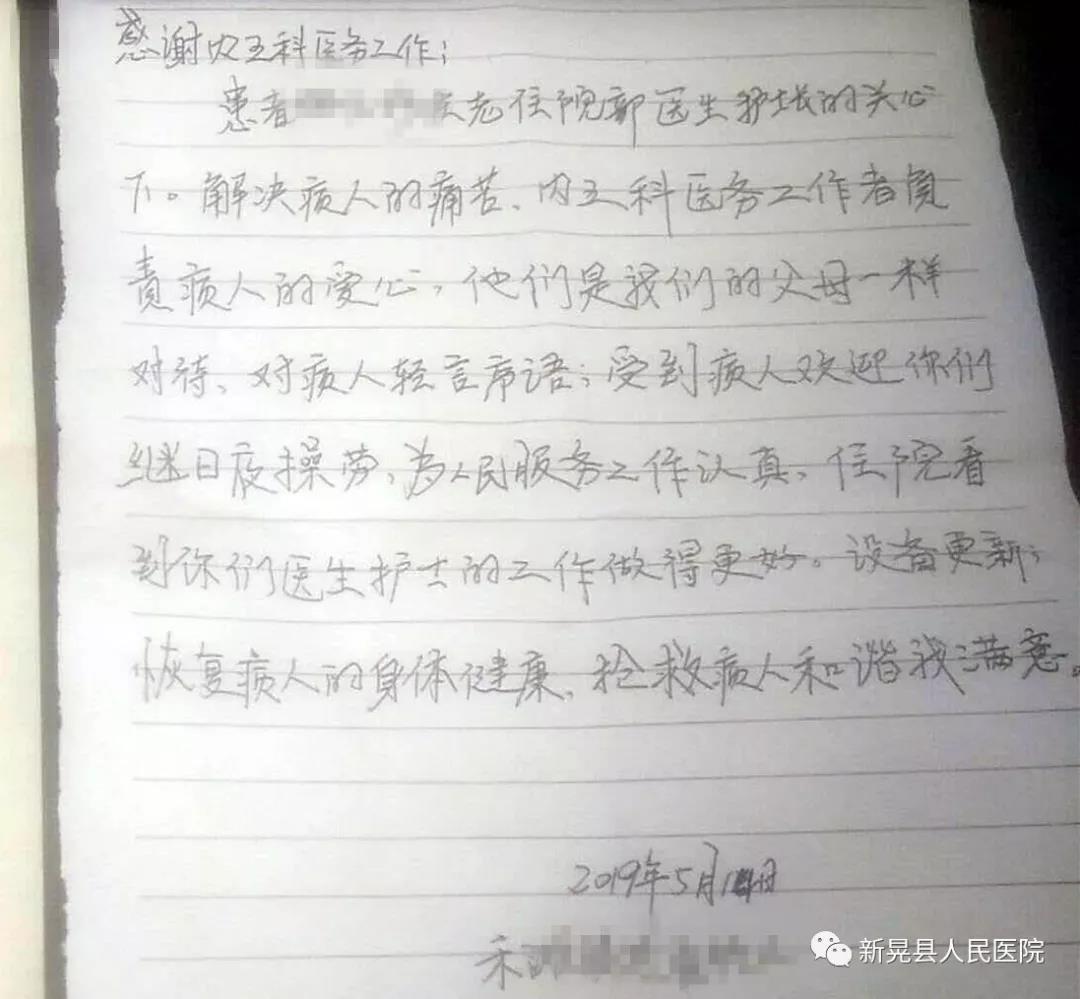 感谢内五科医务工作；
患者 老住院郭医生护士长的关心
下。解决病人的痛苦、内五科医务工作者负
责病人的爱心，他们是我们的父母一样
对待、对病人轻言席语；受到病人欢迎你们
继日夜操劳、为人民服务工作认真、住院看
到你们医生护士的工作做得更好。设备更新；
恢复病人的身体健康、抢救病人和谐我满意。
2019年5月 日
禾
新晃县人民医院